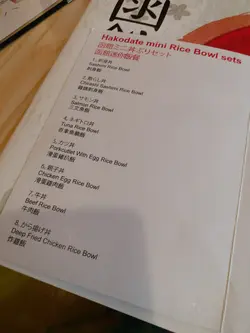 函館
Hakodate mini Rice Bowl sets
函館ミニ丼ぶりセット
1. 刺身丼
Sashimi Rice Bowl
刺身飯
2. 散らし丼
Chirashi Sashimi Rice Bowl
3. サーモン丼
Salmon Rice Bowl
三文魚飯
4. ネギトロ丼
Tuna Rice Bowl
5. カツ丼
Porkcutlet With Egg Rice Bowl
滑蛋豬扒飯
6. 親子丼
Chicken Egg Rice Bowl
滑蛋雞肉飯
7. 牛丼
Beef Rice Bowl
牛肉飯
8. から揚げ丼
Deep Fried Chicken Rice Bowl
炸雞飯